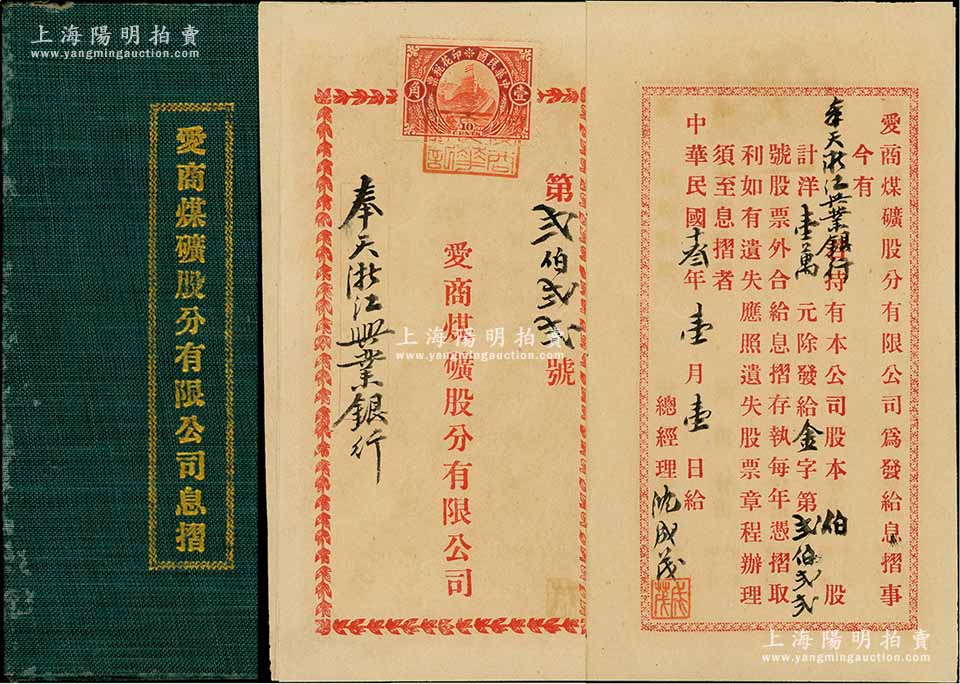 上海陽明拍賣
www.yangmingauction.com
愛商煤礦股分有限公司息摺
中華民國印花稅票
壹
角
10
CENTS
第弍伯弍弍號
愛商煤礦股分有限公司
奉天浙江興業銀行
上海陽明拍賣
www.yangmingauction.com
愛商煤礦股分有限公司爲發給息摺事
今有
奉天浙江興業銀行
持有本公司股本 伯 股
計洋壹萬 元除發給金字第弍伯弍弍
號股票外合給息摺存執每年憑摺取
利如有遺失應照遺失股票章程辦理
須至息摺者
中華民國十叁年壹月壹日給
總經理沈成茂
上海陽明拍賣
www.yangmingauction.com